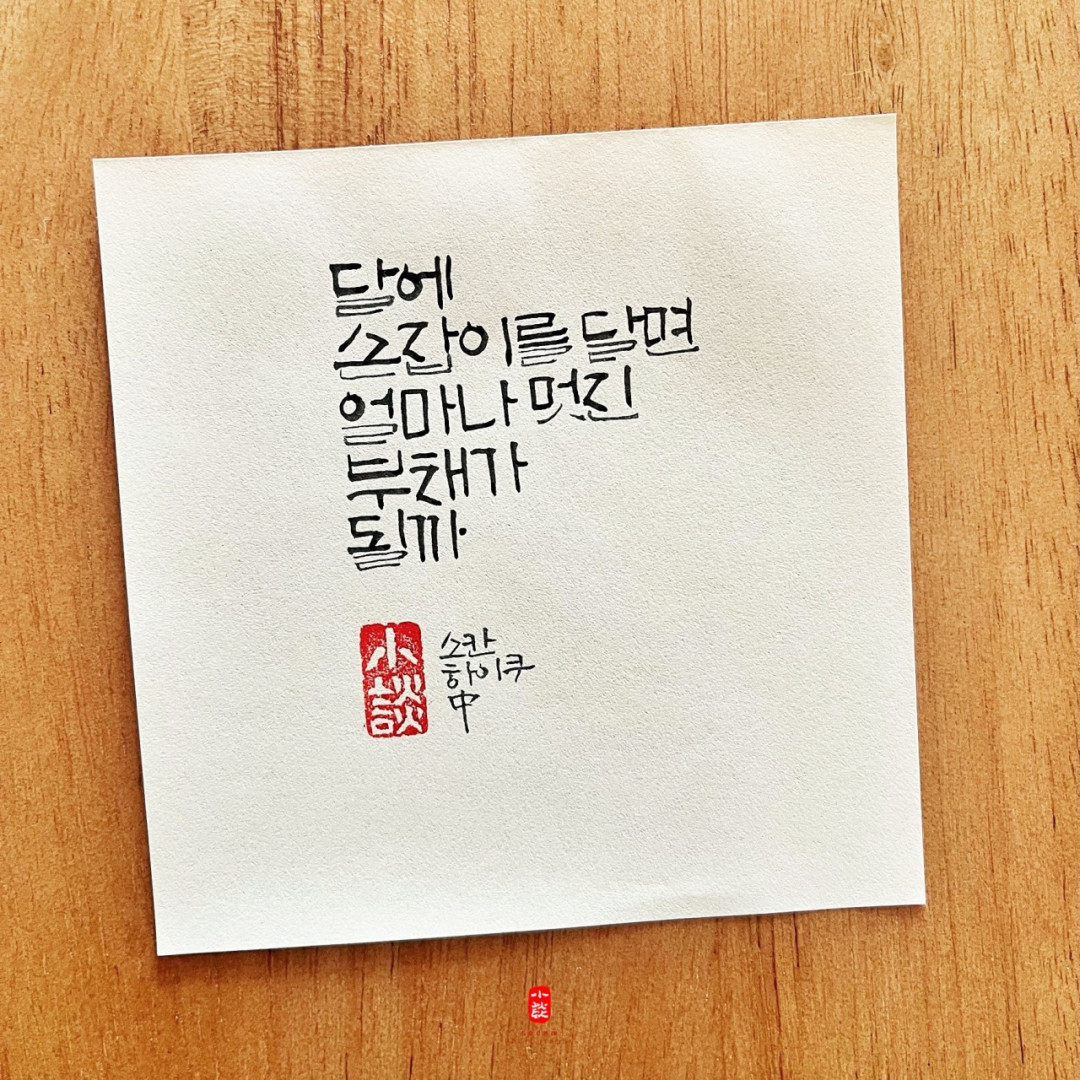 달에
손잡이를 달면
얼마나 멋진
부채가
될까
小談
소칸
하이쿠
中
小談